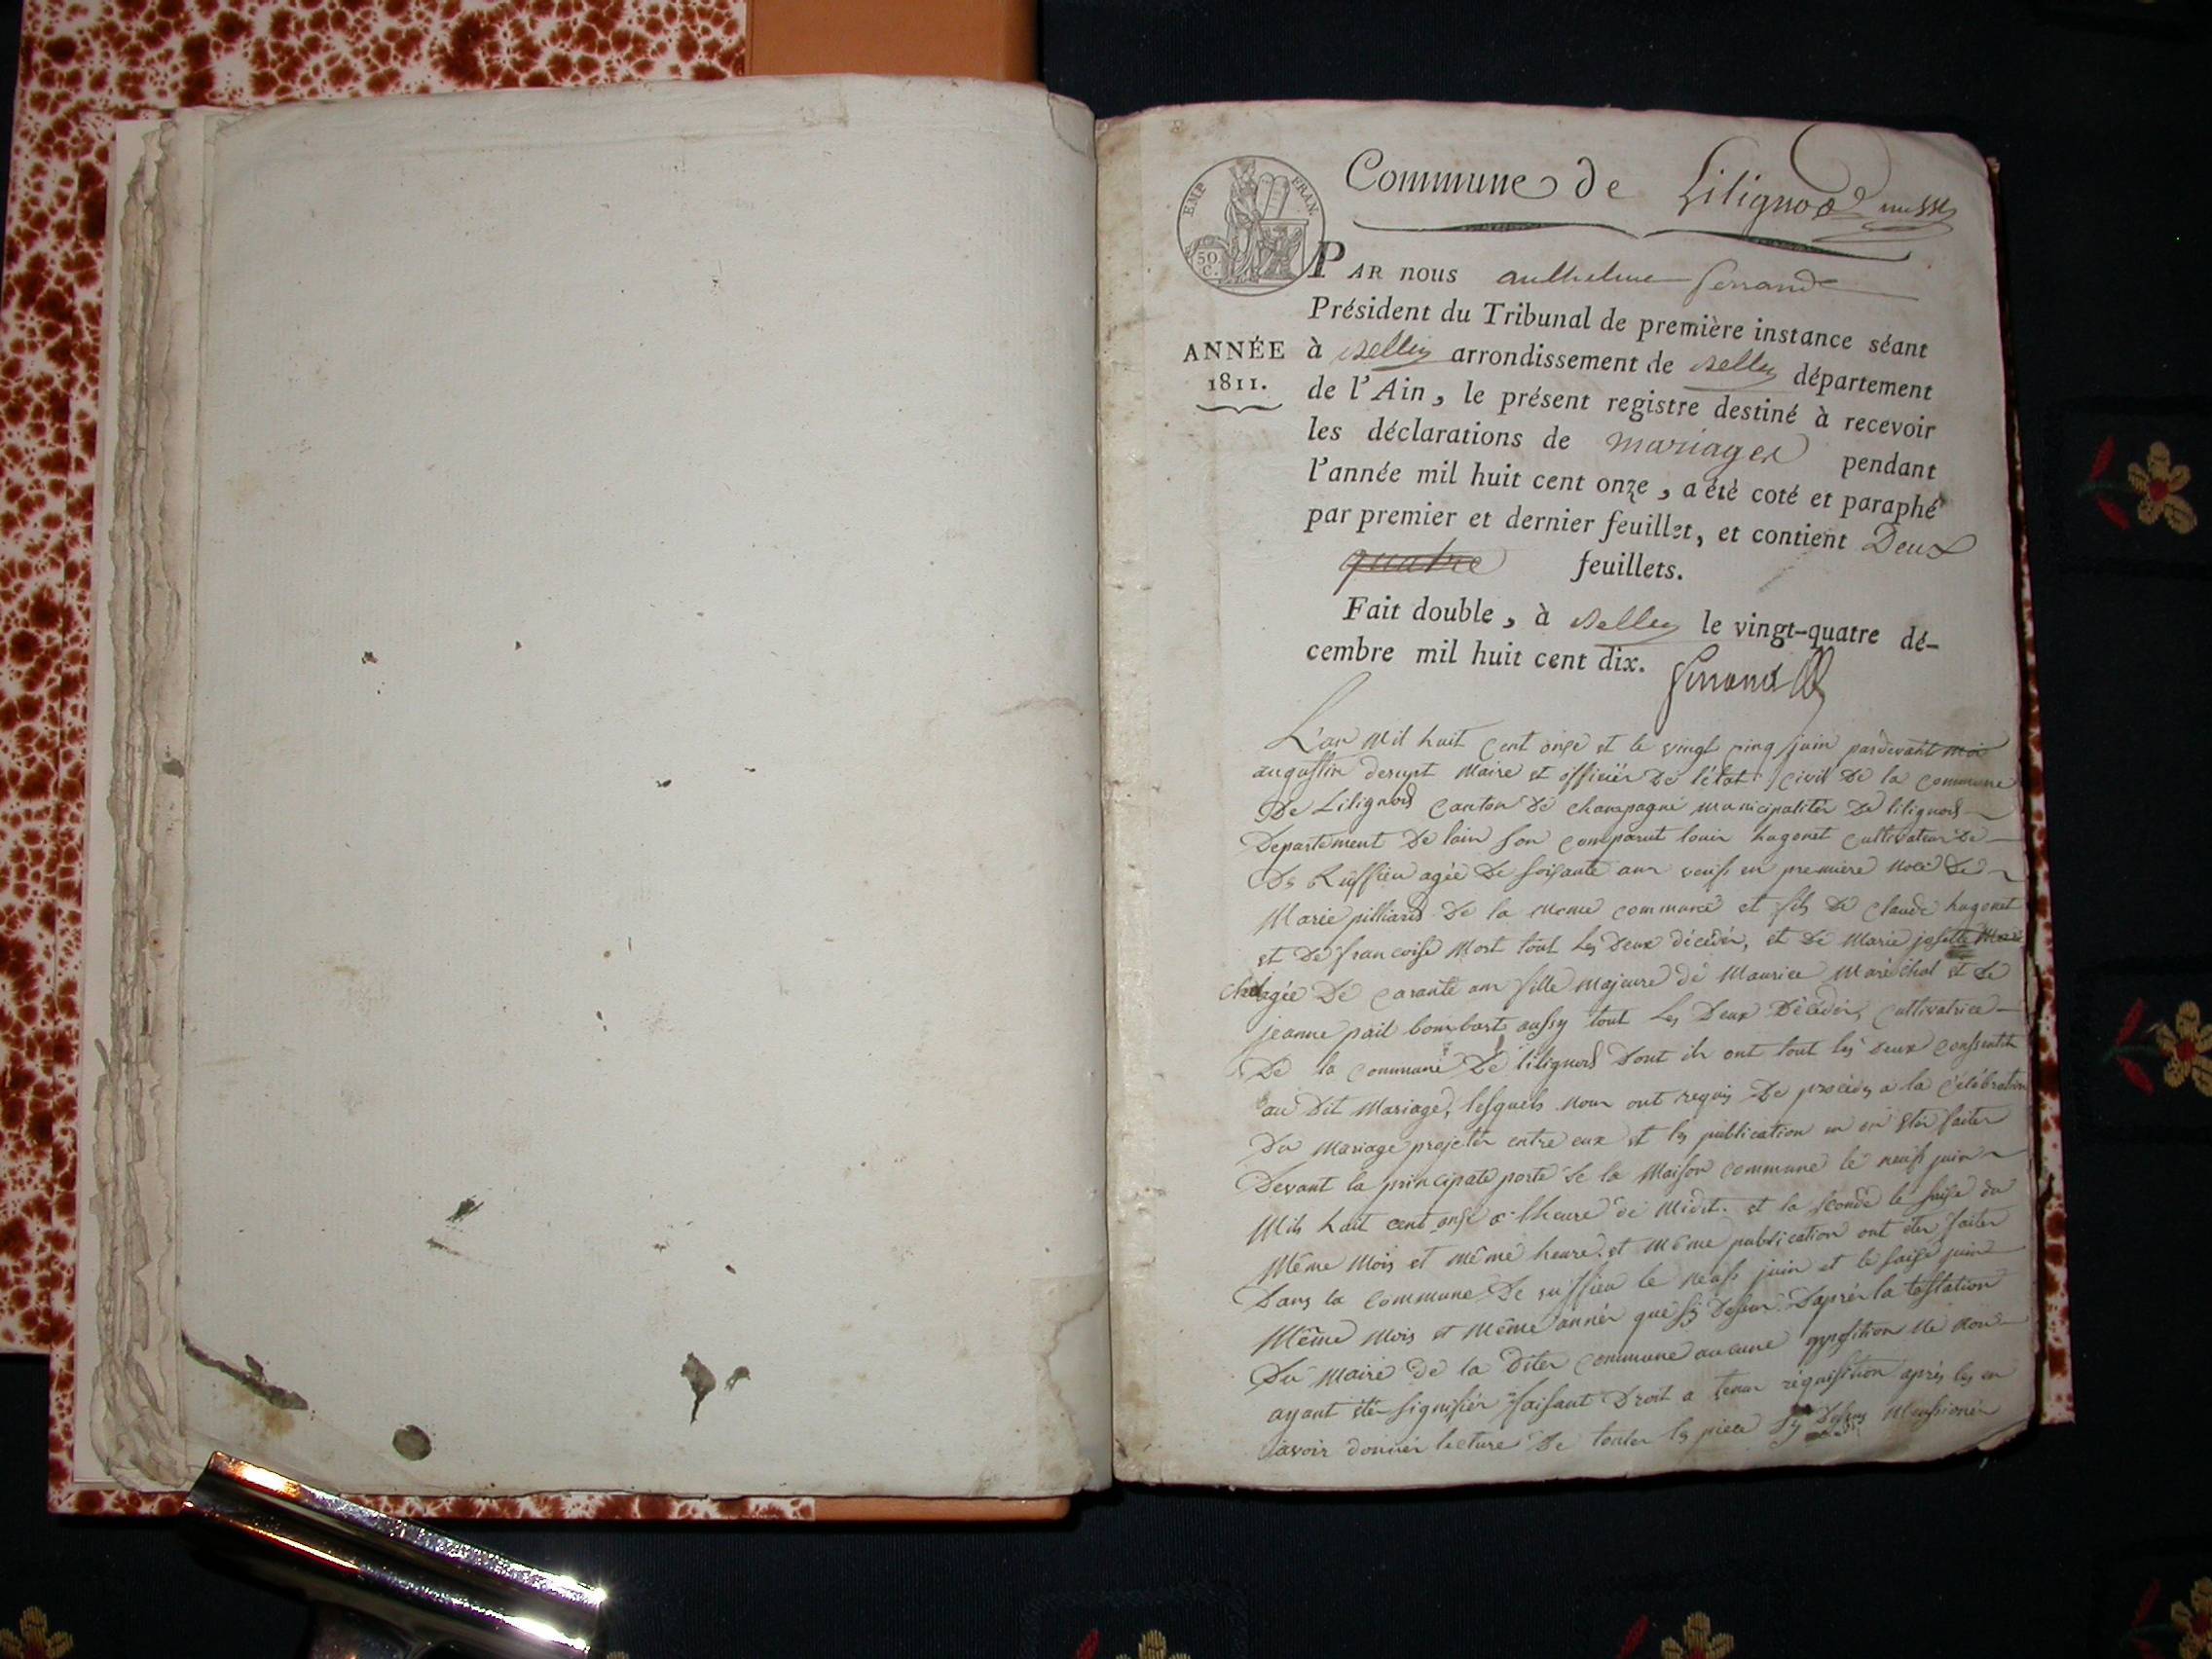 Commune de Lilignod
EMP. FRAN.
50 C.
PAR nous anthelme ferrand
Président du Tribunal de première instance séant
ANNÉE
1811.
à Belley arrondissement de Belley département
de l'Ain, le présent registre destiné à recevoir
les déclarations de mariages pendant
l'année mil huit cent onze, a été coté et paraphé
par premier et dernier feuillet, et contient Deux
quatre feuillets.
Fait double, à Belley le vingt-quatre dé-
cembre mil huit cent dix.
ferrand
L'an mil huit cent onze et le vingt cinq juin pardevant moi
augustin derupt Maire et officiér De l'état civil De la commune
De Lilignod canton De champagne municipalitér De lilignod
Departement De lain son comparut louis hugonet cultivateur De
De Ruffieu agée De soisante ans veuf en premiere noce De
Marie pilliard De la meme commune et fils De claude hugonet
et De francoise Mort tout les Deux décédér, et De Marie josette Mare
chal agée De carante ans fille majeure de Maurice Maréchal et De
jeanne pail bombart aussy tout les Deux Décédér, cultivatrice
De la commune De lilignod Dont ils ont tout les deux conssentit
au Dit Mariage, lesquels nous ont requis De procéder a la célébration
Du mariage projetér entre eux et les publication en on étér faiter
Devant la principale porte De la Maison commune le neuf juin
Mils huit cent onse a lheure de Midit. et la sconde le saise du
Même Mois et même heure. et même publication ont éter faiter
Dans la commune De ruffieu le neuf juin et le saise juin
Même Mois et Même année que sy Dessus. D'aprér la testation
Du maire De la Diter commune aucune opposition ne nou
ayant étér signifiér faisant Droit a leur réquisition aprés les en
avoir donnér lecture De touter les piece sy Dessus Menssionér